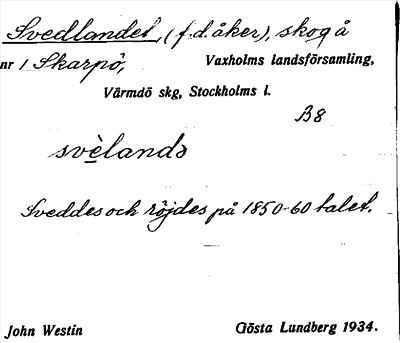 Svedlandet, (f.d. åker), skog å
nr 1 Skarpö, Vaxholms landsförsamling,
Värmdö skg, Stockholms l.
B8
svèlandə
Sveddes och röjdes på 1850-60 talet.
John Westin Gösta Lundberg 1934.